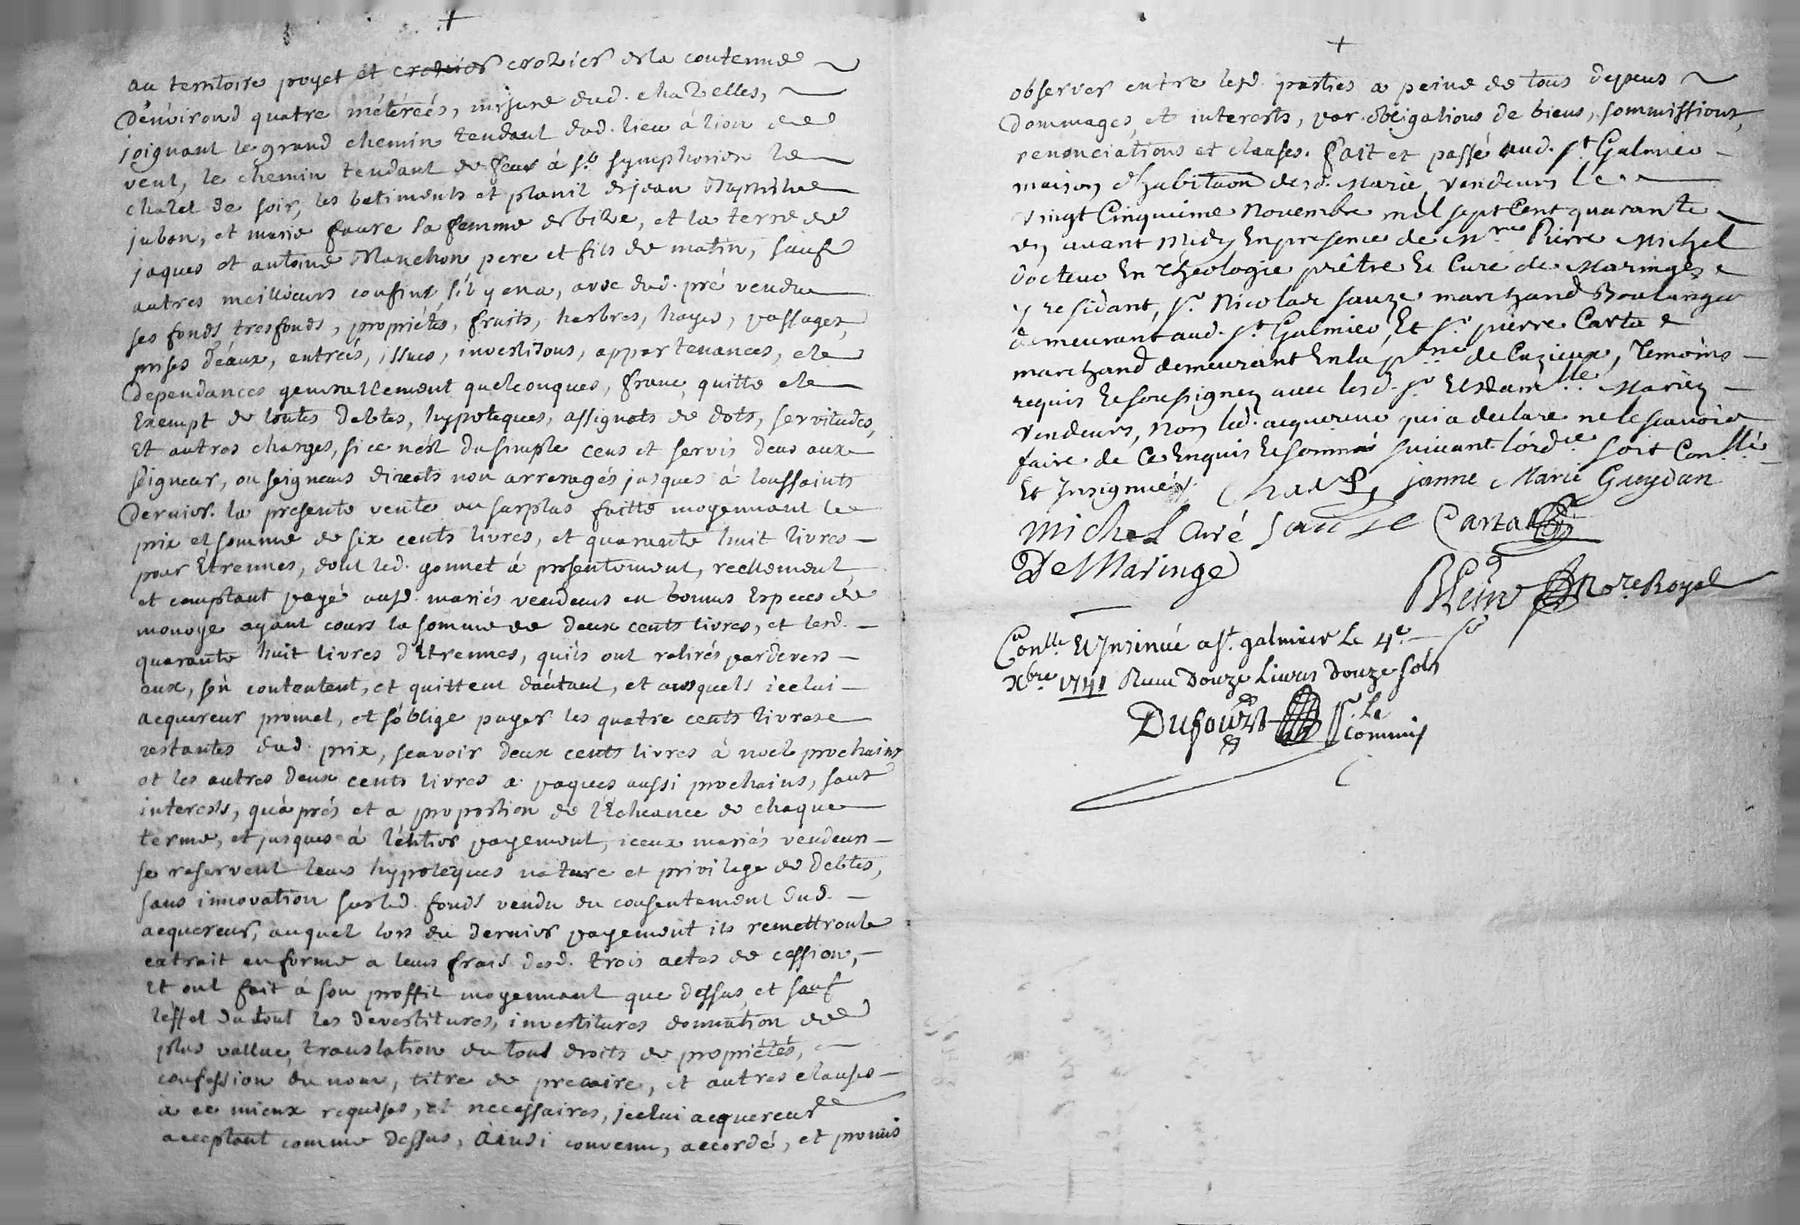 au territoire poyet et crozier crozier de la contenue
d'environd quatre métérées, mesure dud. chazelles,
joignant le grand chemin tendant dud. lieu à lion de
vent, le chemin tendant de feur à st. symphorien le
chazel de soir, les batiments et planil de jean Baptiste
juban, et marie faure sa femme de bize, et la terre de
jaques et antoine Manchon pere et fils de matin, sauf
autres meilleurs confins s'il y en a, avec dud. pré vendu
ses fonds tresfonds, propriétes, fruits, herbres, hayes, passages,
prises d'éaux, entreés, issues, investisons, appartenances, et
dependances generallement quelconques, franc, quitte et
Exempt de toutes debtes, hypoteques, assignats de dots, servitudes,
Et autres charges, si ce n'est du simple cens et servis deus aux
seigneur, ou seigneurs directs non arreragés jusques à toussaints
dernier. la presente vente au surplus faitte moyennant le
prix et somme de six cents livres, et quarante huit livres
pour Etrennes, dont led. gonnet à presentement, reellement
et comptant payé ausd. mariés vendeurs en bonnes Especes de
monoye ayant cours la somme de deux cents livres, et lesd.
quarante huit livres d'Etrennes, quils ont retirés pardevers
eux, s'en contentent, et quittent d'autant, et ausquels icelui
acquereur promet, et s'oblige payer les quatre cents livres
restantes dud. prix, scavoir deux cents livres à noel prochains
et les autres deux cents livres a paques aussi prochains, sans
interests, qu'aprés et a proportion de l'Echeance de chaque
terme, et jusques à l'entier payement, iceux mariés vendeurs
se reservent leurs hypoteques nature et privilege de debtes,
sans innovation sur led. fonds vendu du consentement dud.
acquereur, auquel lors du dernier payement ils remettront
extrait en forme a leurs frais desd. trois actes de cession,
Et ont fait à son proffit moyennant que dessus, et sauf
l'effet du tout les devestitures, investitures donnation de
plus vallue, translation de tous droits de propriétés,
confession de nom, titre de precaire, et autres clauses
à ce mieux requises, et necessaires, icelui acquereur
acceptant comme dessus, Ainsi convenu, accordé, et promis
observer entre lesd. parties a peine de tous depens
dommages, et interests, par obligations de biens, sommissions,
renonciations et clauses. fait et passé aud. st. Galmier
maison d'habitaon desd. Marié, vendeurs le
vingt Cinquième Novembre mil sept Cent quarante
un avant Midy En presence de Mre. Pierre Michel
Docteur En Theologie prêtre Et Curé de Maringes
y residant, sr. Nicolas Sauze marchand Boulanger
demeurant aud. st. Galmier, Et sr. pierre Carta
marchand demeurant En la psse. de Cuzieux, Temoins
requis Et soussignez avec lesd. sr. Et damlle. Mariez
vendeurs, Non led. acquereur qui a declaré ne le scavoir
faire de Ce Enquis Et sommé suivant l'ordce. soit Conllé.
Et Insignuéz.
janne Marie Guydan
Michel Curé Sauze Carta
De Maringe
Blein Nore. Royal
Conllé. Et Insinué a st. galmier Le 4e.
Xbre 1741 Reçu Douze Livres Douze sols
Dufour
Le
Commis